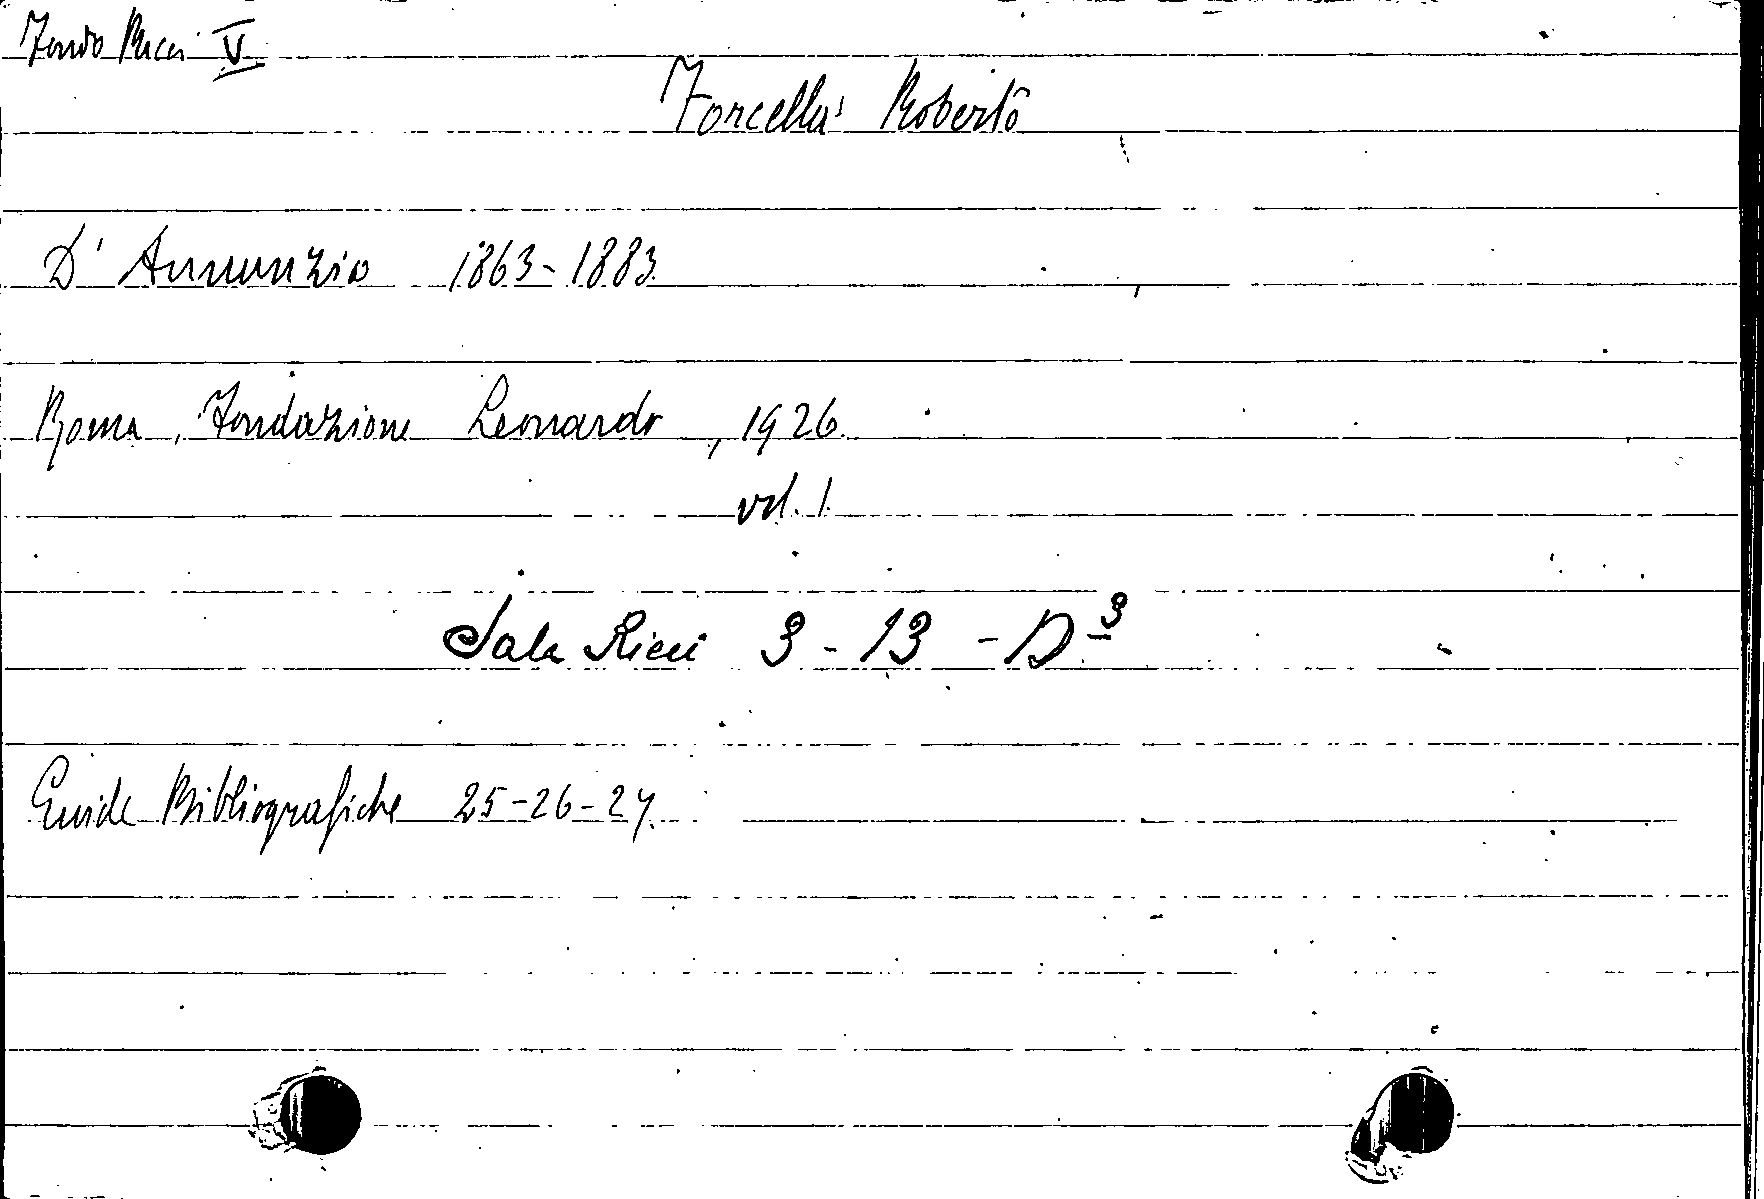 Fondo Ricci V
Forcella Roberto
D'Annunzio 1863-1883
Roma, Fondazione Leonardo, 1926.
vol. 1.
Sala Ricci 3 - 13 - D 3
Guide Bibliografiche 25-26-27.